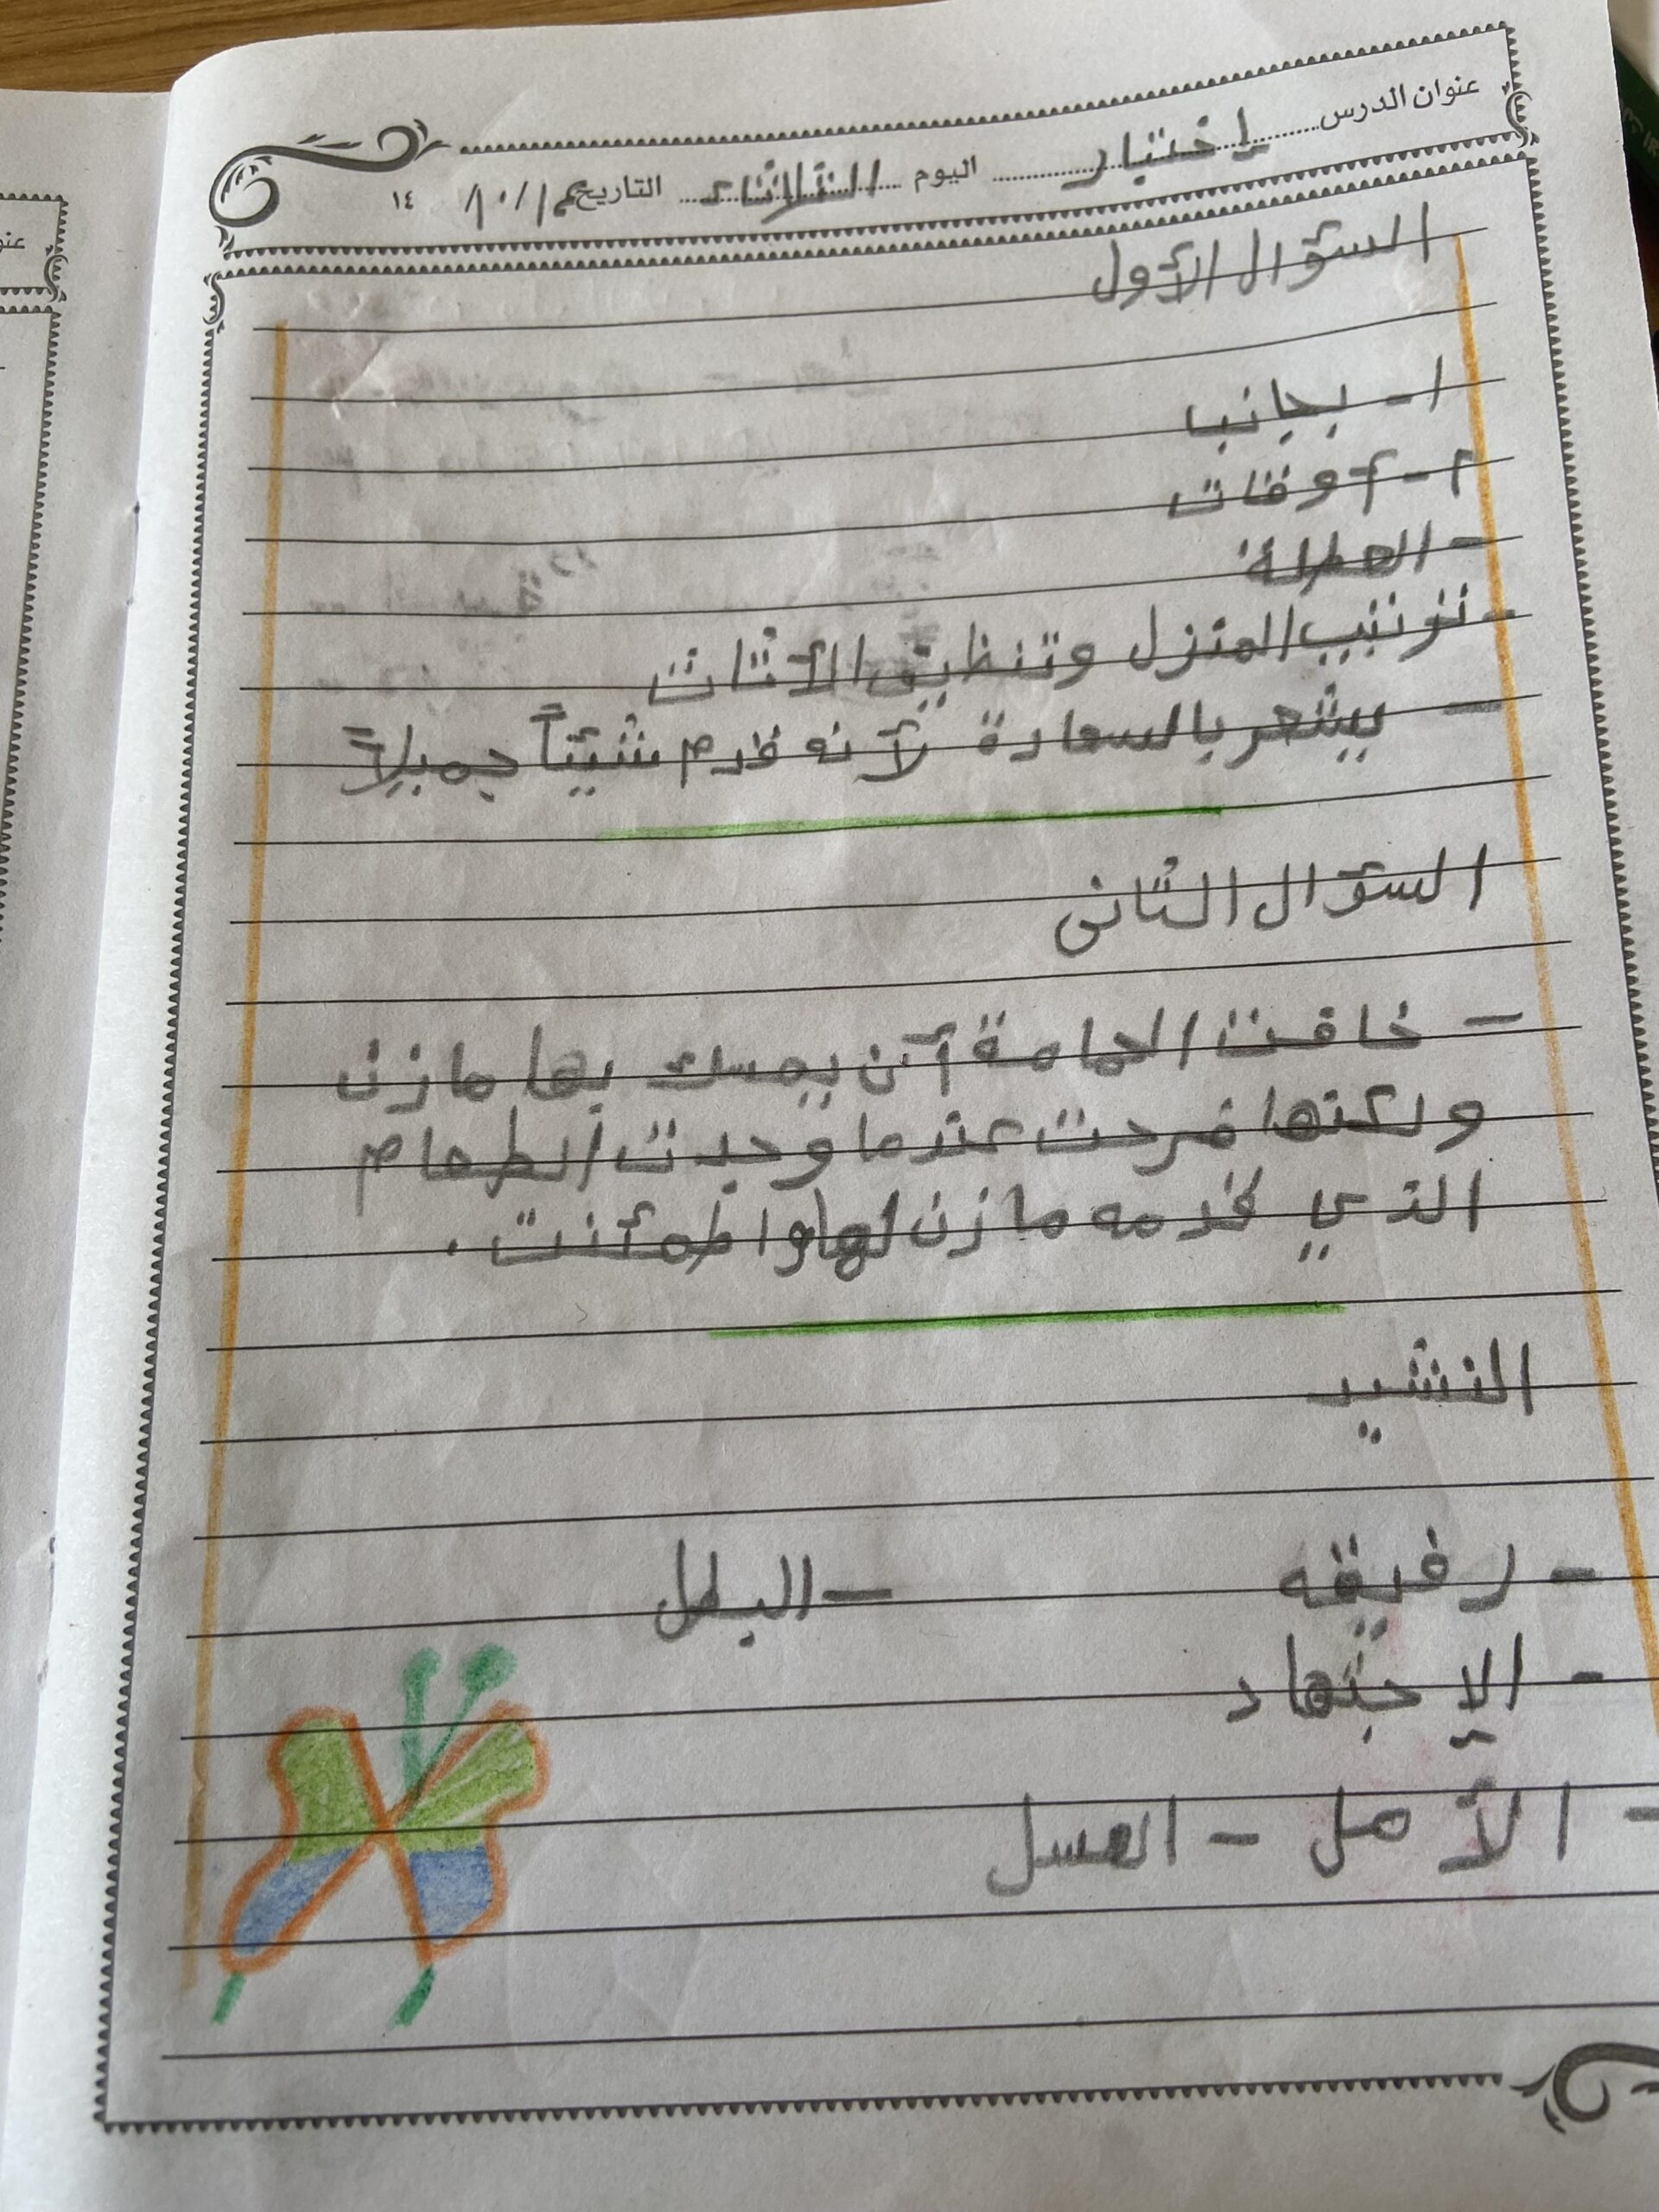 عنوان الدرس اختبار اليوم الثلاثاء التاريخ ١٤
السؤال الأول
١- بجانب
٢- أوقات
- العطلة
- ترتيب المنزل وتنظيف الأثاث
- يشعر بالسعادة لأنه قدم شيئاً جميلاً
السؤال الثانى
- خافت الحمامة أن يمسك بها مازن
ولكنها فرحت عندما وجدت الطعام
الذي قدمه مازن لها واطمأنت.
النشيد
- رفيقه - البطل
- الإجتهاد
- الأمل - العسل